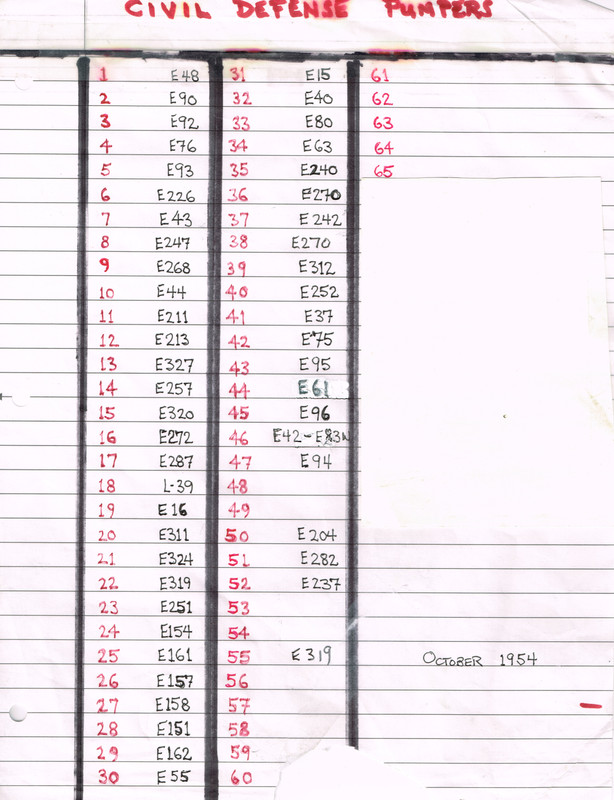 CIVIL DEFENSE PUMPERS
1 E48
2 E90
3 E92
4 E76
5 E93
6 E226
7 E43
8 E247
9 E268
10 E44
11 E211
12 E213
13 E327
14 E257
15 E320
16 E272
17 E287
18 L-39
19 E16
20 E311
21 E324
22 E319
23 E251
24 E154
25 E161
26 E157
27 E158
28 E151
29 E162
30 E55
31 E15
32 E40
33 E80
34 E63
35 E240
36 E270
37 E242
38 E270
39 E312
40 E252
41 E37
42 E75
43 E95
44 E61
45 E96
46 E42-
47 E94
48
49
50 E204
51 E282
52 E237
53
54
55 E319
56
57
58
59
60
61
62
63
64
65
OCTOBER 1954